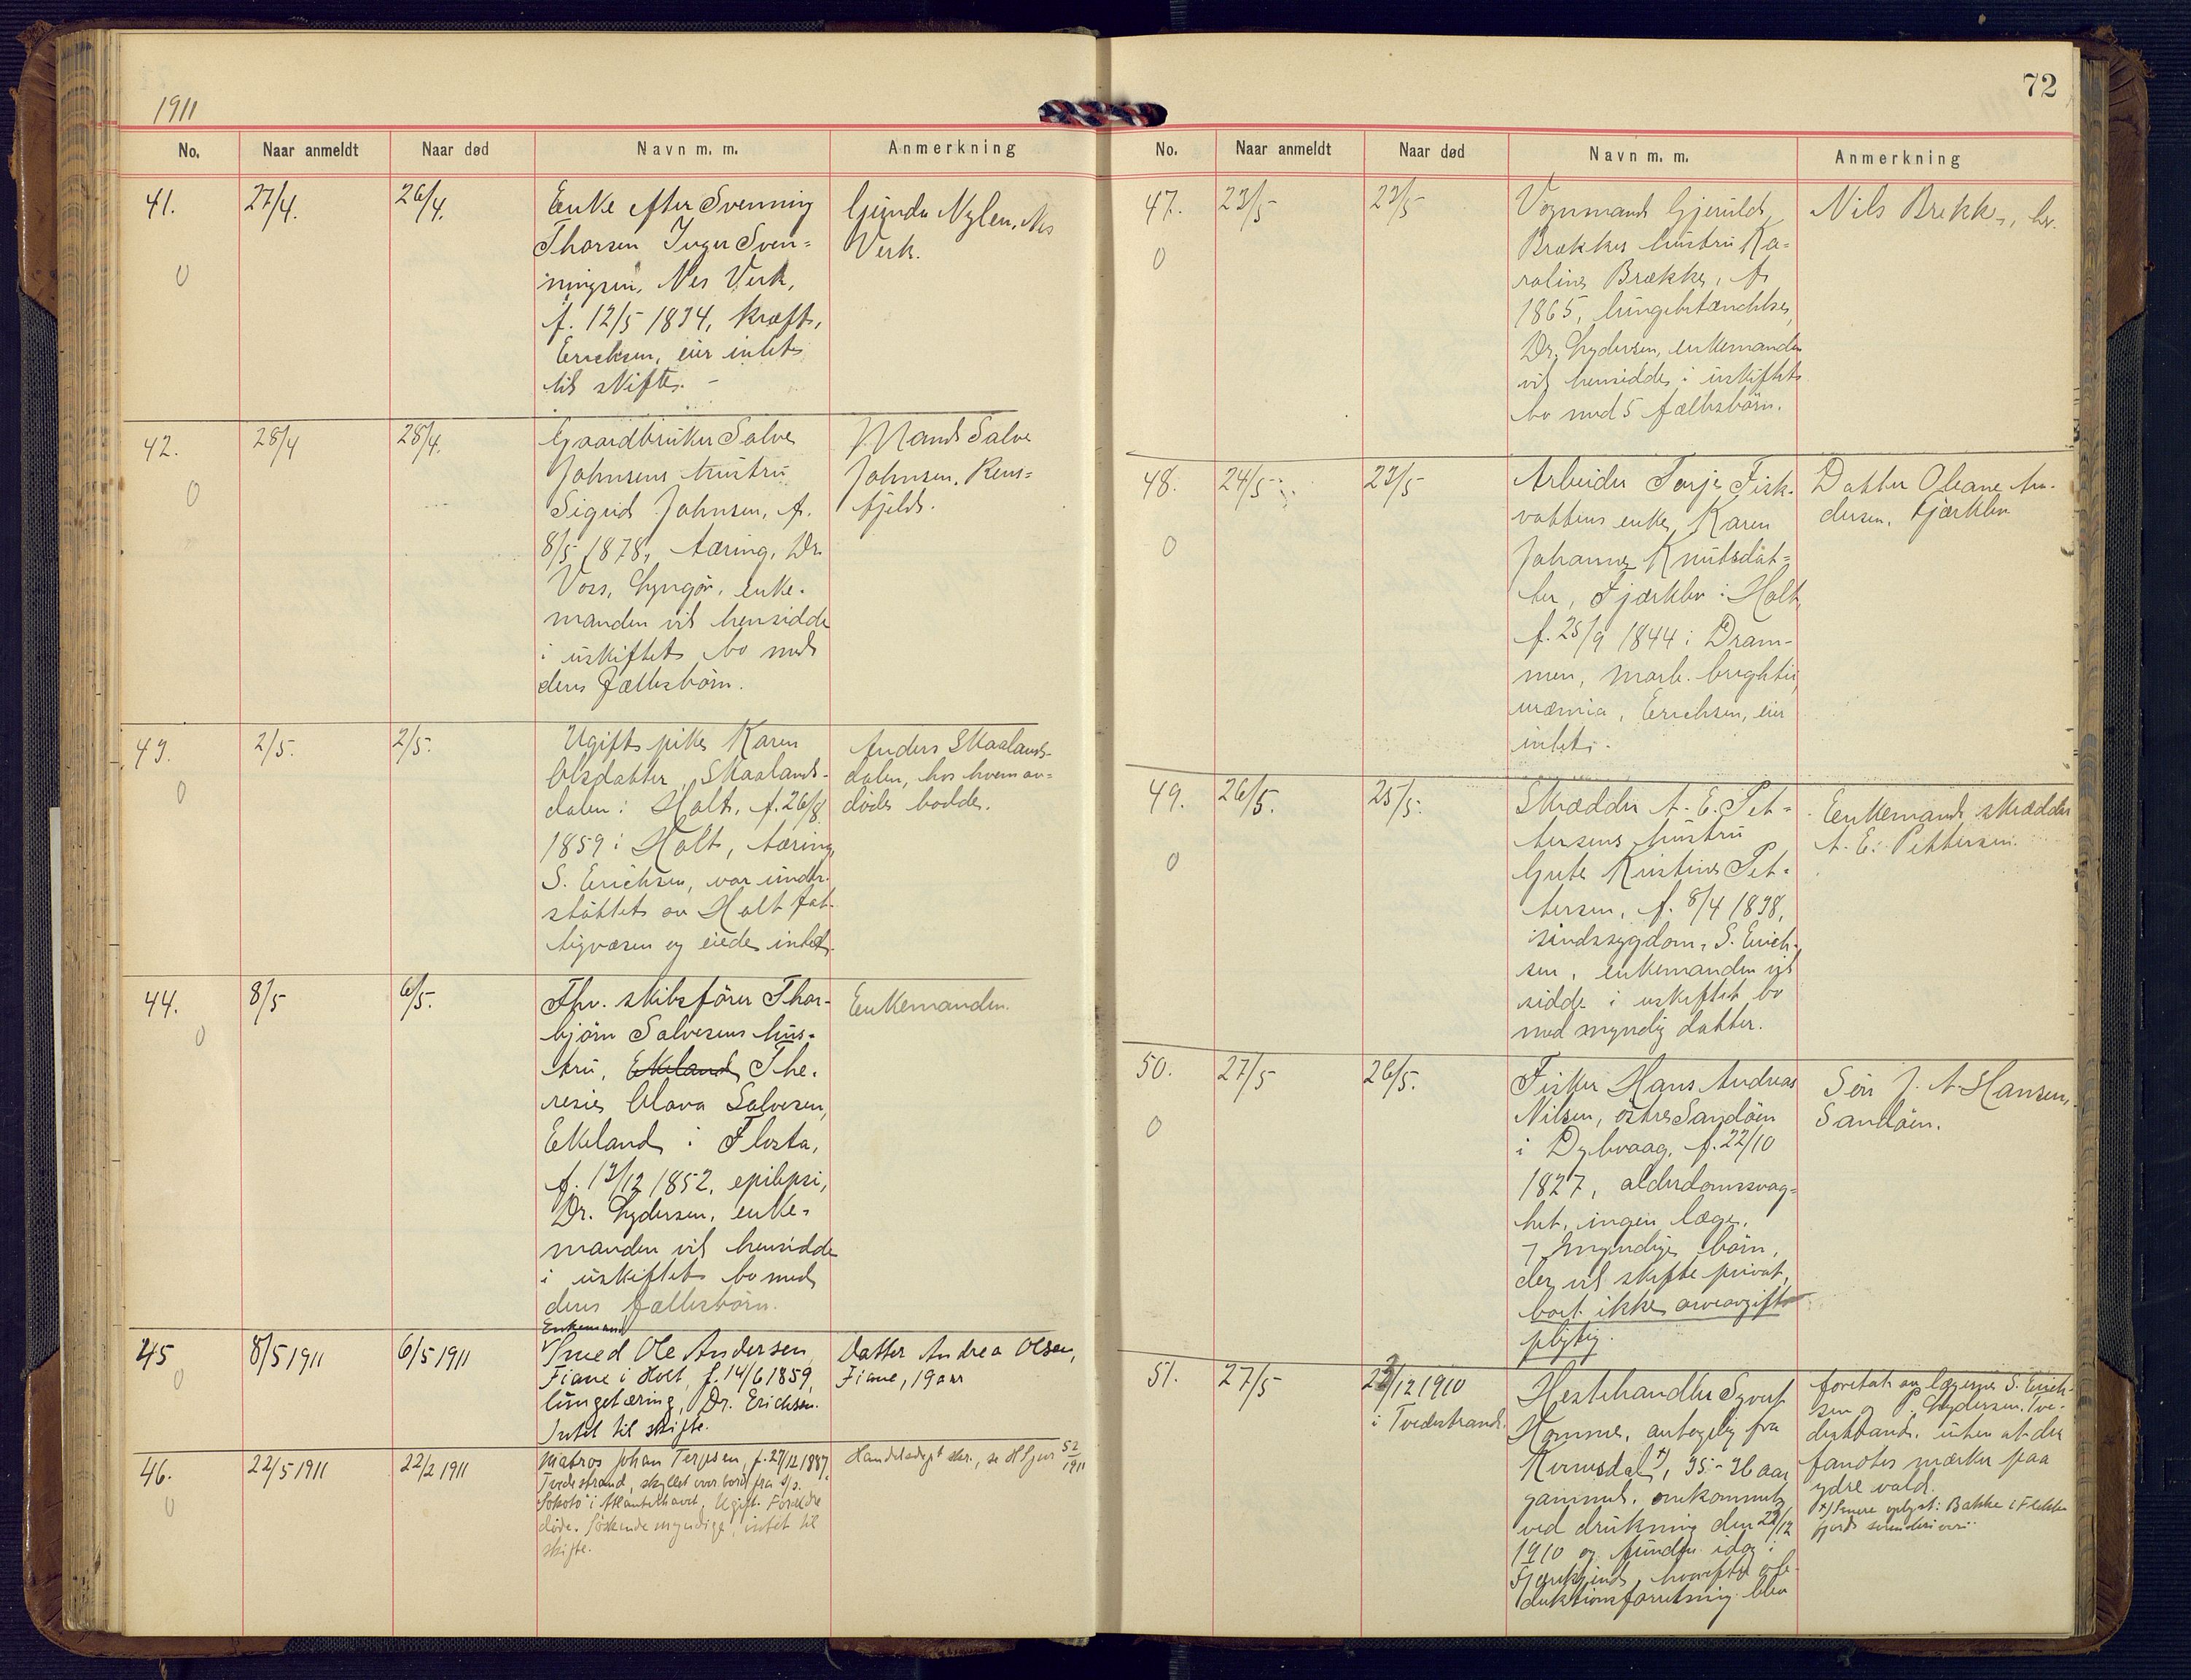 1911
No. Naar anmeldt Naar død Navn m. m. Anmerkning
41. 27/4. 26/4.
Enke efter Svenning
Thorsen Inger Sven=
ningsen, Nes Verk,
f. 12/5 1834, kræft,
Erichsen, eier intet
til skifte. -
Gunda Nylen, Nes
Verk.
0
42. 28/4 28/4.
Gaardbruker Salve
Johnsens hustru
Sigrid Johnsen, f.
8/5 1878, tæring, Dr.
Voss, Lyngør, enke-
manden vil hensidde
i uskiftet bo med
deres fællesbørn.
Mand Salve
Johnsen, Rens=
fjeld.
0
43. 2/5. 2/5.
Ugift pike Karen
Olsdatter, Skaalands-
dalen i Holt, f. 26/8
1859 i Holt, tæring,
S. Erichsen, var under-
støttet av Holt fat-
tigvæsen og eiede intet.
Anders Skaalands-
dalen, hos hvem av=
døde bodde.
0
44. 8/5 6/5.
Fhv. skibsfører Thor-
bjørn Salvesens hus-
tru, Ekeland The-
resie Olava Salvesen,
Ekeland i Flosta,
f. 13/12 1852, epilepsi,
Dr. Lydersen, enke-
manden vil hensidde
i uskiftet bo med
deres fællesbørn.
Enkemanden.
0
45 8/5 1911 6/5 1911
Enkemand
Smed Ole Andersen
Fiane i Holt, f. 14/6 1859,
lungetæring, Dr. Erichsen.
Intet til skifte.
Datter Andrea Olsen,
Fiane, 19 aar
0
46. 22/5 1911 22/2 1911
Matros Johan Terjesen, f. 27/12 1887,
Tvedestrand, skyllet over bord fra s/s.
"Sokoto" i Atlanterhavet. Ugift. Forældre
døde. Søskende myndige, intet til
skifte.
Handelsdept skr., se H Jour 52/1911
0
72
No. Naar anmeldt Naar død Navn m. m. Anmerkning
47. 23/5 23/5
Vognmand Gjeruld
Brækkes hustru Ka=
roline Brække, f.
1865, lungebetændelse,
Dr. Lydersen, enkemanden
vil hensidde i uskiftet
bo med 5 fællesbørn.
Nils Brekke, her.
0
48. 24/5 23/5
Arbeider Terje Fisk-
vattens enke Karen
Johanne Knutsdat=
ter, Fjærkleiv i Holt,
f. 25/9 1844 i Dram-
men, morb. brightii,
uræmia, Erichsen, eier
intet.
Datter Oleane An-
dersen, Fjærkleiv
0
49. 26/5. 25/5.
Skrædder A. E. Pet-
tersens hustru
Gute Kristine Pet-
tersen, f. 8/4 1838,
sindssygdom, S. Erich-
sen, enkemanden vil
sidde i uskiftet bo
med myndig datter.
Enkemand skrædder
A. E. Pettersen.
0
50. 27/5 26/5.
Fisker Hans Andreas
Nilsen, østre Sandøen
i Dybvaag, f. 22/10
1827, alderdomssvag=
het, ingen læge.
7 myndige børn,
der vil skifte privat,
boet ikke arveavgifts
pligtig.
Søn J. A. Hansen,
Sandøen.
0
51. 27/5 23/12 1910
i Tvedestrand.
Hestehandler Syvert
Homme, antagelig fra
Kvinesdal x), 35-36 aar
gammel, omkommet
ved drukning den 23/12
1910 og funden idag i
hvorefter obe-
duktionsforretning blev
foretat av lægerne S. Erich-
sen og P. Lydersen, Tve-
destrand, uten at der
fandtes mærker paa
ydre vold.
x) Senere oplyst: Bakke i Flekke
fjords sorenskriveri.